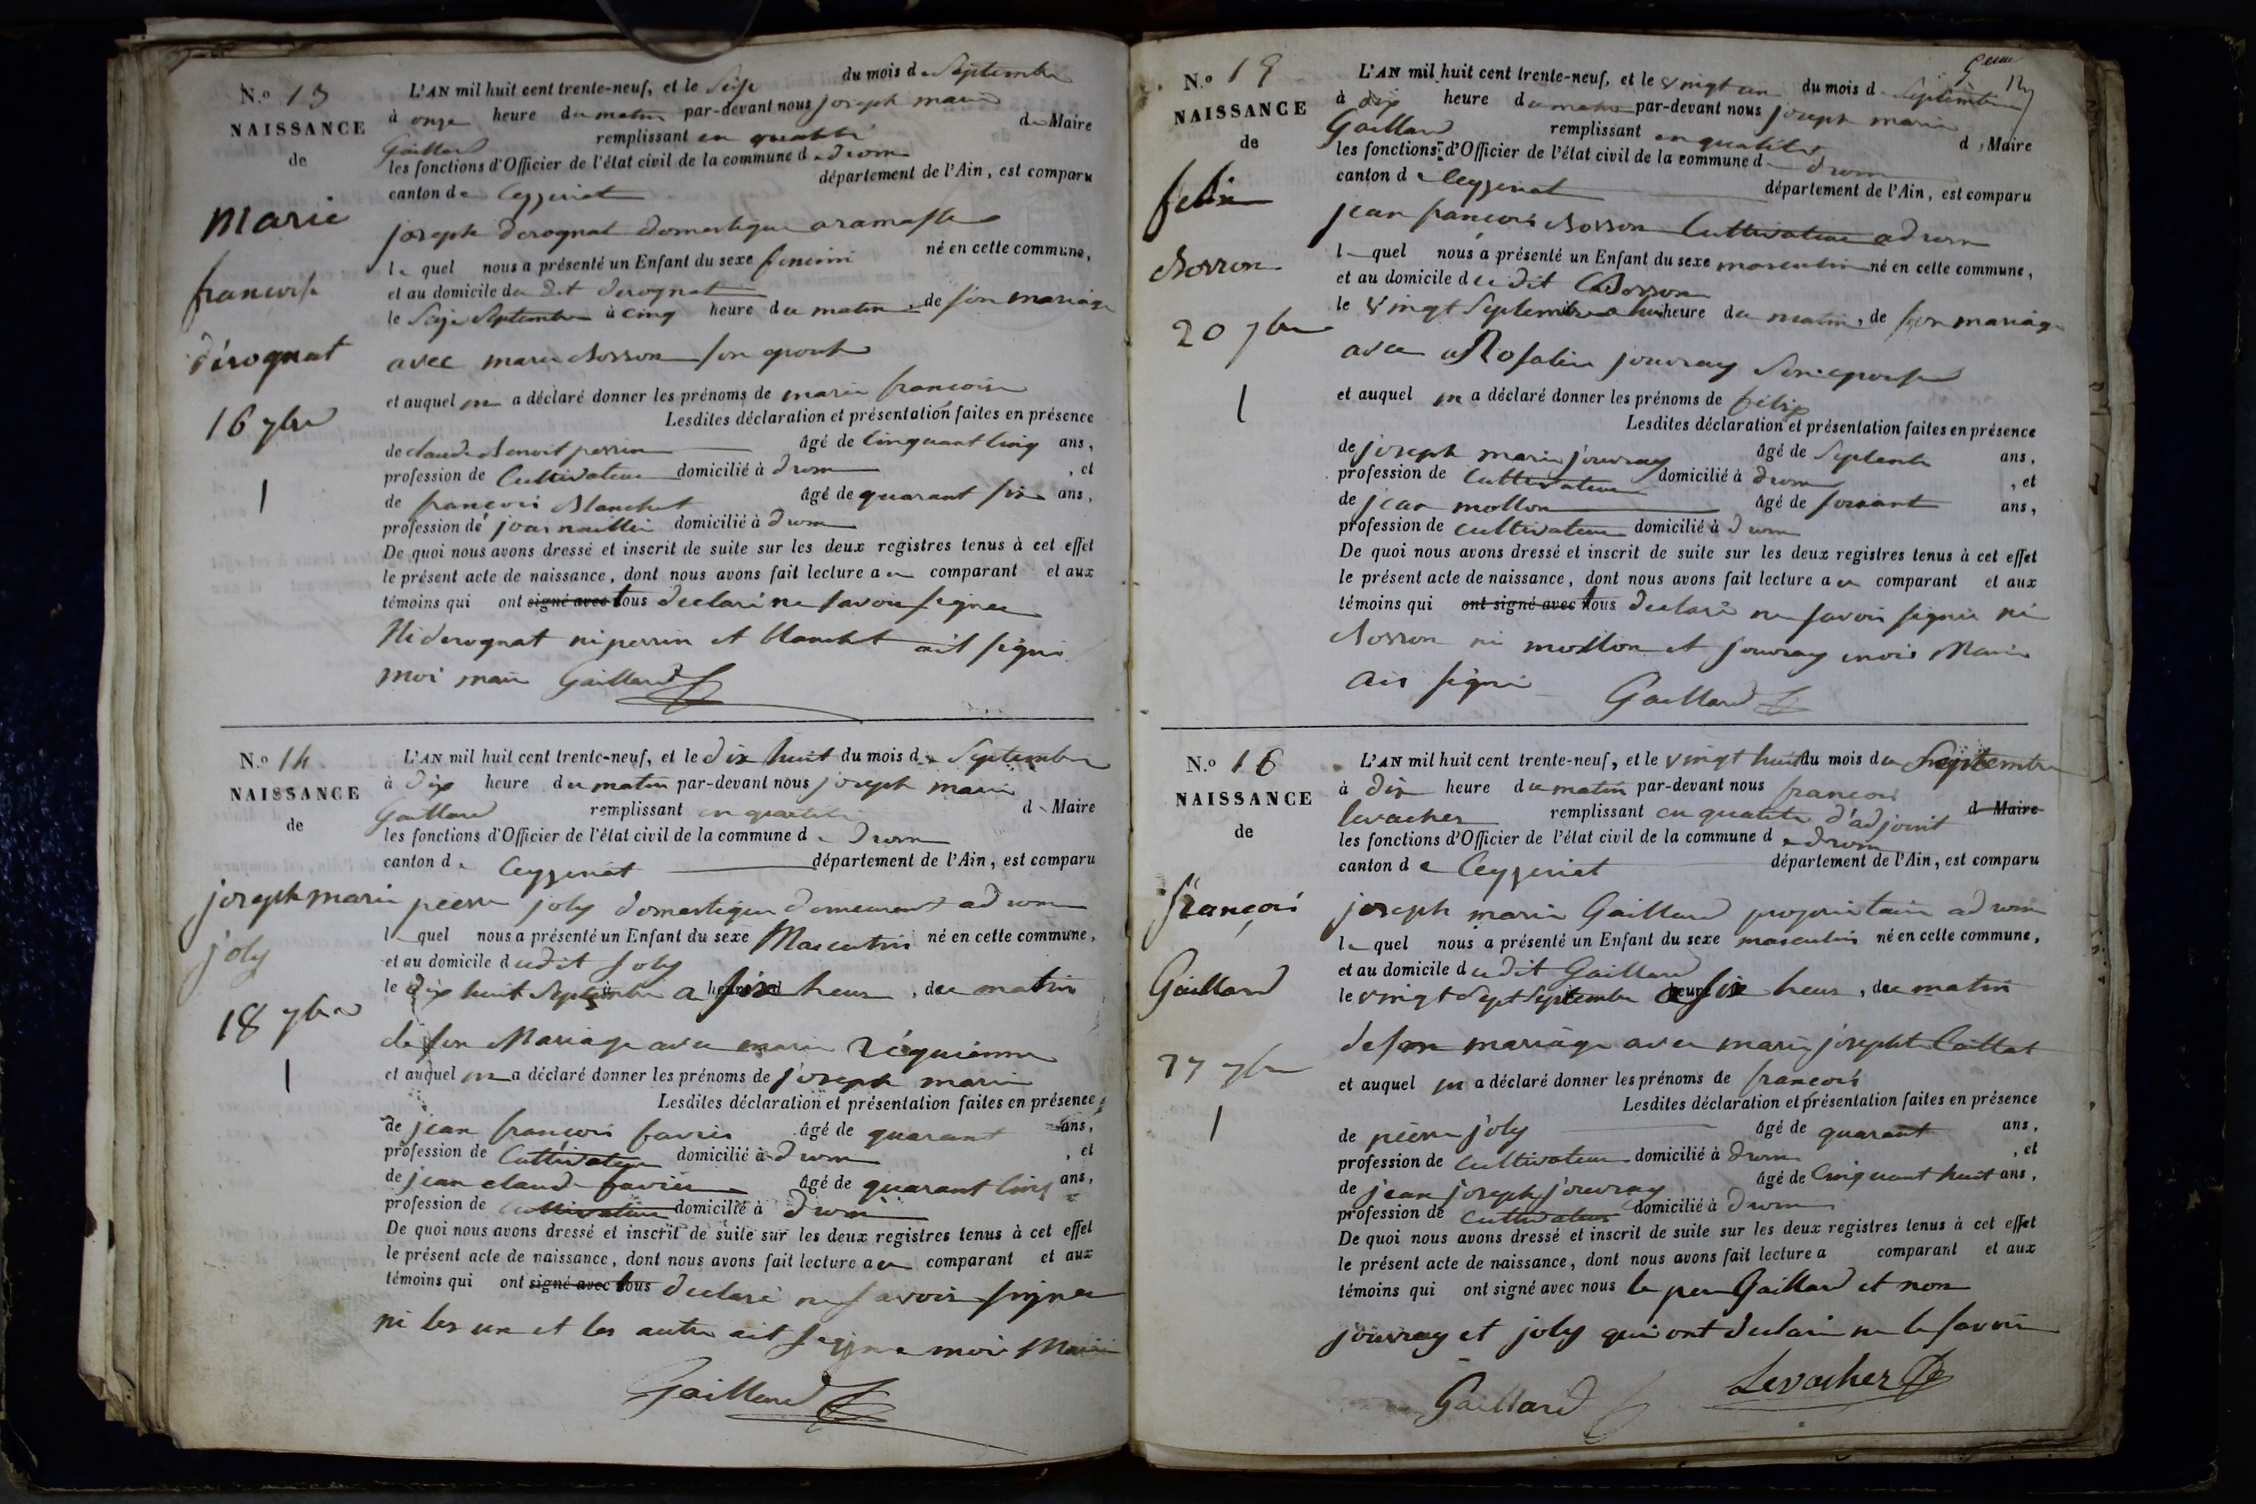 N.o 13
NAISSANCE
de
marie
francoise
dérognat
16 7bre
1
L'AN mil huit cent trente-neuf, et le seize du mois de Septembre
à onze heure du matin par-devant nous joseph marie
Gaillard remplissant en qualité de Maire
les fonctions d'Officier de l'état civil de la commune de drom
canton de Ceyzeriat département de l'Ain, est comparu
joseph derognat domestique a ramasse
le quel nous a présenté un Enfant du sexe feminin né en cette commune,
et au domicile du dit derognat
le Seize Septembre à cinq heure du matin, de son mariage
avec marie Borron son epouse
et auquel on a déclaré donner les prénoms de marie francoise
Lesdites déclaration et présentation faites en présence
de claude Benoit perrin âgé de Cinquant Cinq ans,
profession de Cultivateur domicilié à drom, et
de françois Blanchet âgé de quarant six ans,
profession de journaillier domicilié à drom
De quoi nous avons dressé et inscrit de suite sur les deux registres tenus à cet effet
le présent acte de naissance, dont nous avons fait lecture au comparant et aux
témoins qui ont signé avec tous declaré ne savoir signer
Ni derognat ni perrin et blanchet ait signé
moi maire Gaillard
N.o 14
NAISSANCE
de
joseph marie
joly
18 7bre
1
L'AN mil huit cent trente-neuf, et le dix huit du mois de Septembre
à dix heure du matin par-devant nous joseph marie
Gaillard remplissant en qualité de Maire
les fonctions d'Officier de l'état civil de la commune de Drom
canton de Ceyzeriat département de l'Ain, est comparu
pierre joly domestique demeurant a drom
le quel nous a présenté un Enfant du sexe Masculin né en cette commune,
et au domicile dudit joly
le dix huit Septembre a six heure, du matin
de son Mariage avec marie réquiemme
et auquel on a déclaré donner les prénoms de joseph marie
Lesdites déclaration et présentation faites en présence
de jean françois favier âgé de quarant ans,
profession de Cultivateur domicilié à drom, et
de jean claude favier âgé de quarant Cinq ans,
profession de cultivateur domicilié à drom
De quoi nous avons dressé et inscrit de suite sur les deux registres tenus à cet effet
le présent acte de naissance, dont nous avons fait lecture au comparant et aux
témoins qui ont signé avec tous declaré ne savoir signer
ni les un et les autre ait signe moi Maire
Gaillard
N.o 15
NAISSANCE
de
felix
Borron
20 7bre
1
L'AN mil huit cent trente-neuf, et le vingt un du mois de Septembre
à dix heure du matin par-devant nous joseph marie
Gaillard remplissant en qualité de Maire
les fonctions d'Officier de l'état civil de la commune de drom
canton de Ceyzeriat département de l'Ain, est comparu
jean françois Borron Cultivateur a drom
le quel nous a présenté un Enfant du sexe masculin né en cette commune,
et au domicile dudit Borron
le vingt Septembre a huit heure du matin, de son mariage
avec Rosalie jouvray son epouse
et auquel on a déclaré donner les prénoms de félix
Lesdites déclaration et présentation faites en présence
de joseph marie jouvray âgé de Septente ans,
profession de Cultivateur domicilié à drom, et
de jean mollon âgé de soixant ans,
profession de cultivateur domicilié à drom
De quoi nous avons dressé et inscrit de suite sur les deux registres tenus à cet effet
le présent acte de naissance, dont nous avons fait lecture au comparant et aux
témoins qui ont signé avec tous declaré ne savoir signer ni
Borron ni mollon et jouvray moi Maire
ais signé Gaillard
N.o 16
NAISSANCE
de
françois
Gaillard
27 7bre
1
L'AN mil huit cent trente-neuf, et le vingt huit du mois de Septembre
à dix heure du matin par-devant nous francois
levacher remplissant en qualité d'adjoint d Maire
les fonctions d'Officier de l'état civil de la commune de drom
canton de Ceyzeriat département de l'Ain, est comparu
joseph marie Gaillard proprietaire a drom
le quel nous a présenté un Enfant du sexe masculin né en cette commune,
et au domicile dudit Gaillard
le vingt Sept Septembre a six heure, du matin
de son mariage avec marie josephte Caillat
et auquel on a déclaré donner les prénoms de françois
Lesdites déclaration et présentation faites en présence
de pierre joly âgé de quarant ans,
profession de cultivateur domicilié à drom, et
de jean joseph jouvray âgé de Cinquant huit ans,
profession de cultivateur domicilié à drom
De quoi nous avons dressé et inscrit de suite sur les deux registres tenus à cet effet
le présent acte de naissance, dont nous avons fait lecture a comparant et aux
témoins qui ont signé avec nous le pere Gaillard et non
jouvray et joly qui ont declaré ne le savoir
Gaillard Levacher